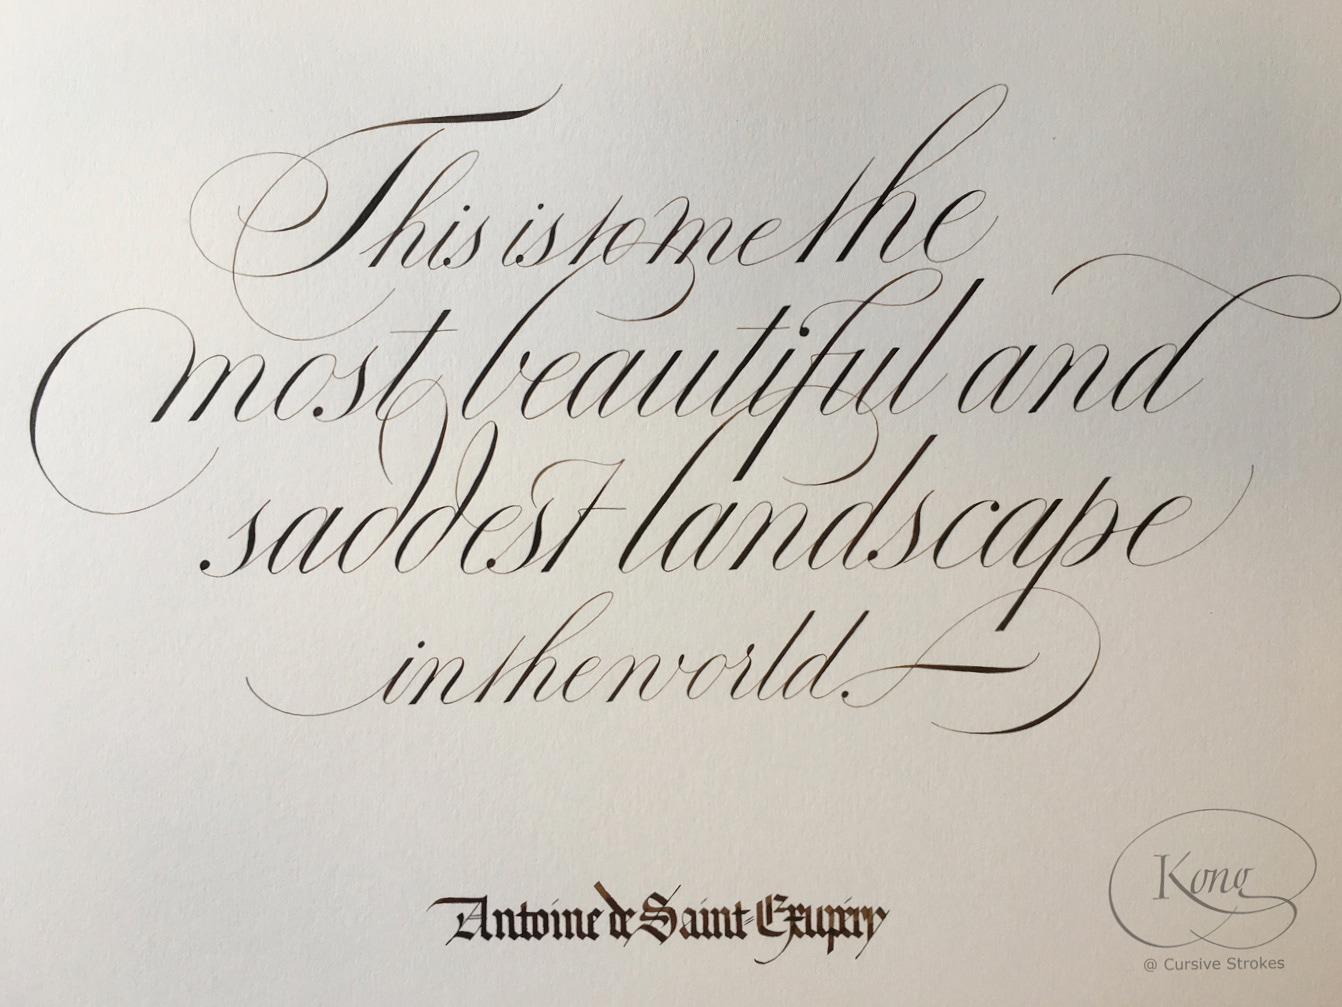 This is to me the
most beautiful and
saddest landscape
in the world.
Antoine de Saint-Exupéry
Kong
@ Cursive Strokes